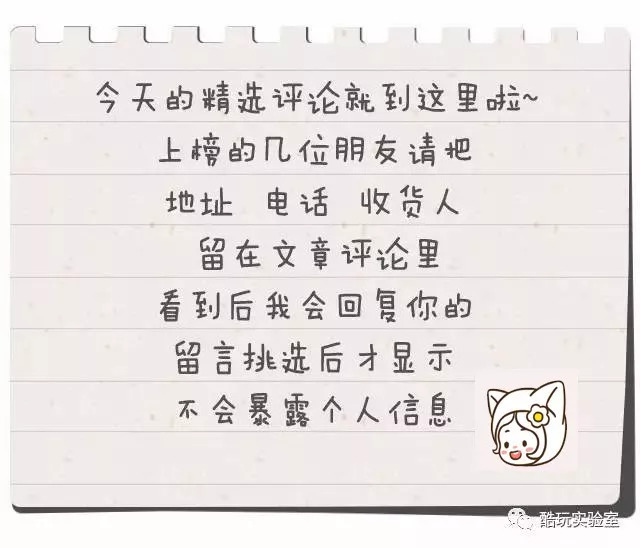 今天的精选评论就到这里啦~
上榜的几位朋友请把
地址 电话 收货人
留在文章评论里
看到后我会回复你的
留言挑选后才显示
不会暴露个人信息
酷玩实验室